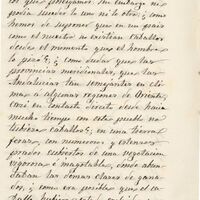 cos que poseyamos. Sin embargo no
podia suceder lo uno ni lo otro; como
hemos de suponer que en un pais
como el nuestro no existian caballos
desde el momento que el hombre
lo pobló; ¿como dudar que las
provincias meridionales, que las
Andalucias tan semejantes en cli-
ma a algunas regiones de Oriente
casi en contacto directo desde hacia
mucho tiempo con este pueblo no
tubiera caballos?; en una tierra
feraz, con numerosos y extensos
prados cubiertos de una vegetacion
vigorosa é inagotable, donde abun-
daban las demas clases de gana-
dos, ¿como era posible que el ca-
ballo